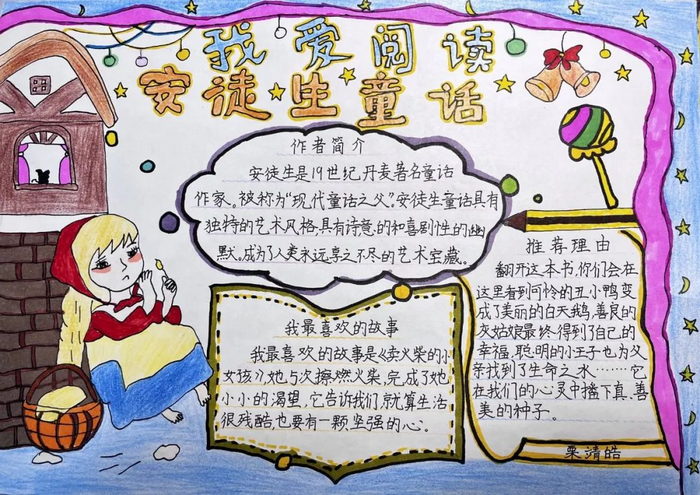 我爱阅读
安徒生童话
作者简介
安徒生是19世纪丹麦著名童话
作家。被称为“现代童话之父”。安徒生童话具有
独特的艺术风格,具有诗意的和喜剧性的幽
默。成为了人类永远享之不尽的艺术宝藏。
我最喜欢的故事
我最喜欢的故事是《卖火柴的小
女孩》她与次擦燃火柴,完成了她
小小的渴望。它告诉我们,就算生活
很残酷也要有一颗坚强的心。
推荐理由
翻开这本书,你们会在
这里看到可怜的丑小鸭变
成了美丽的白天鹅,善良的
灰姑娘最终得到了自己的
幸福,聪明的小王子也为父
亲找到了生命之水………它
在我们的心灵中播下真、善
美的种子。
栗靖皓